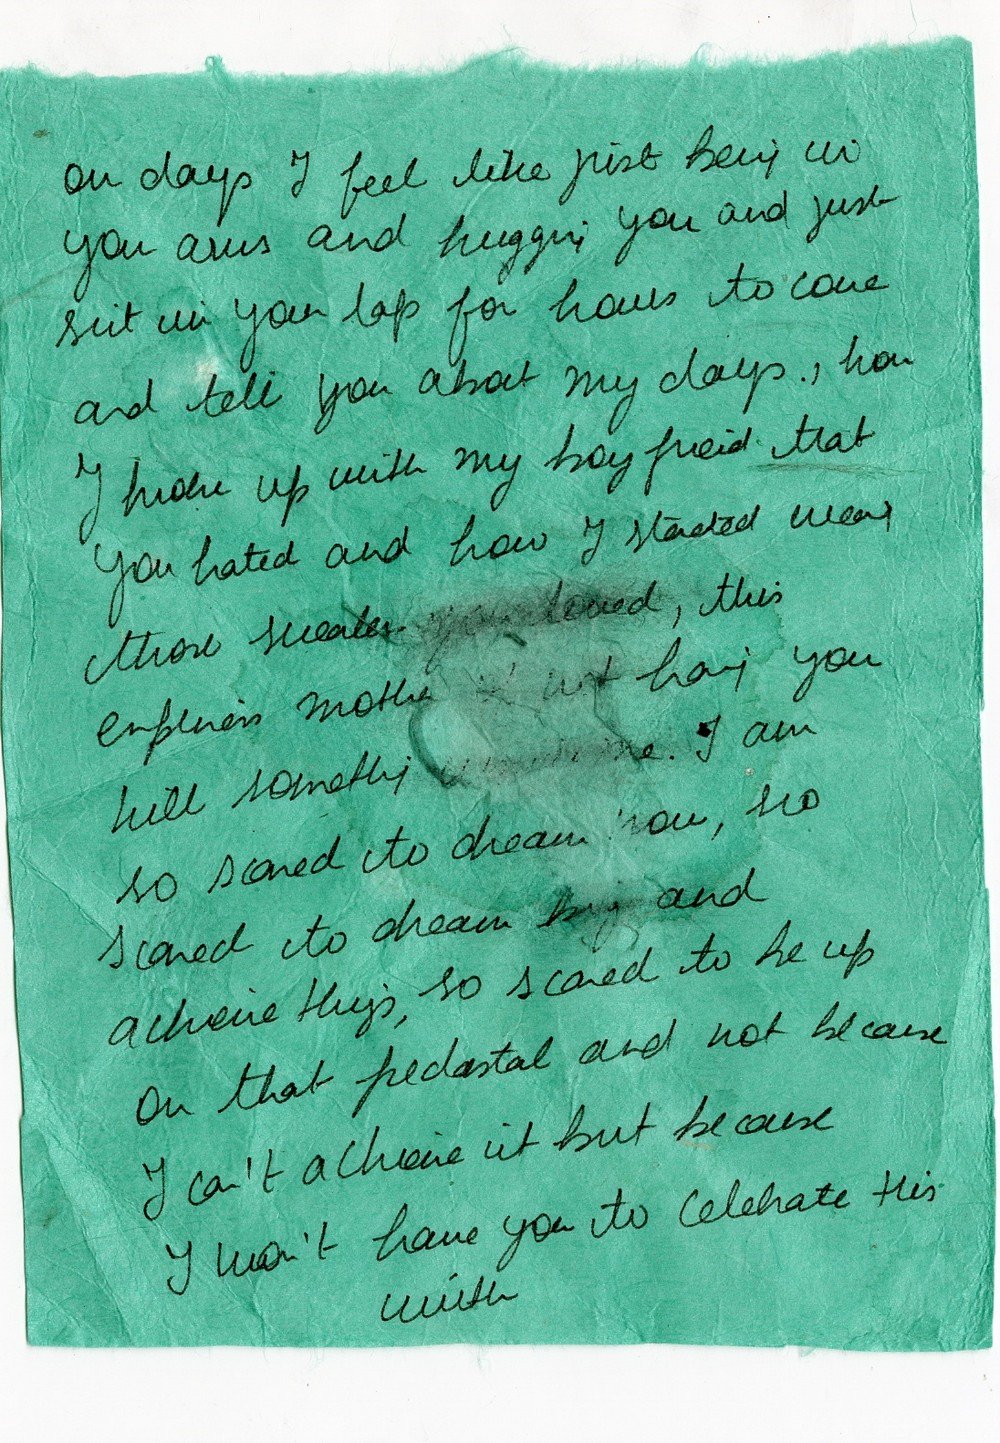 on days I feel like just being in
your arms and hugging you and just
sit in your lap for hours to come
and tell you about my days., how
I broke up with my boyfreid that
you hated and how I started wearing
those sweater you loved, this
emptiness mother is not having you
kill something me. I am
so scared to dream now, so
scared to dream big and
achieve things, so scared to be up
on that pedastal and not because
I can't achieve it but because
I won't have you to celebrate this
with